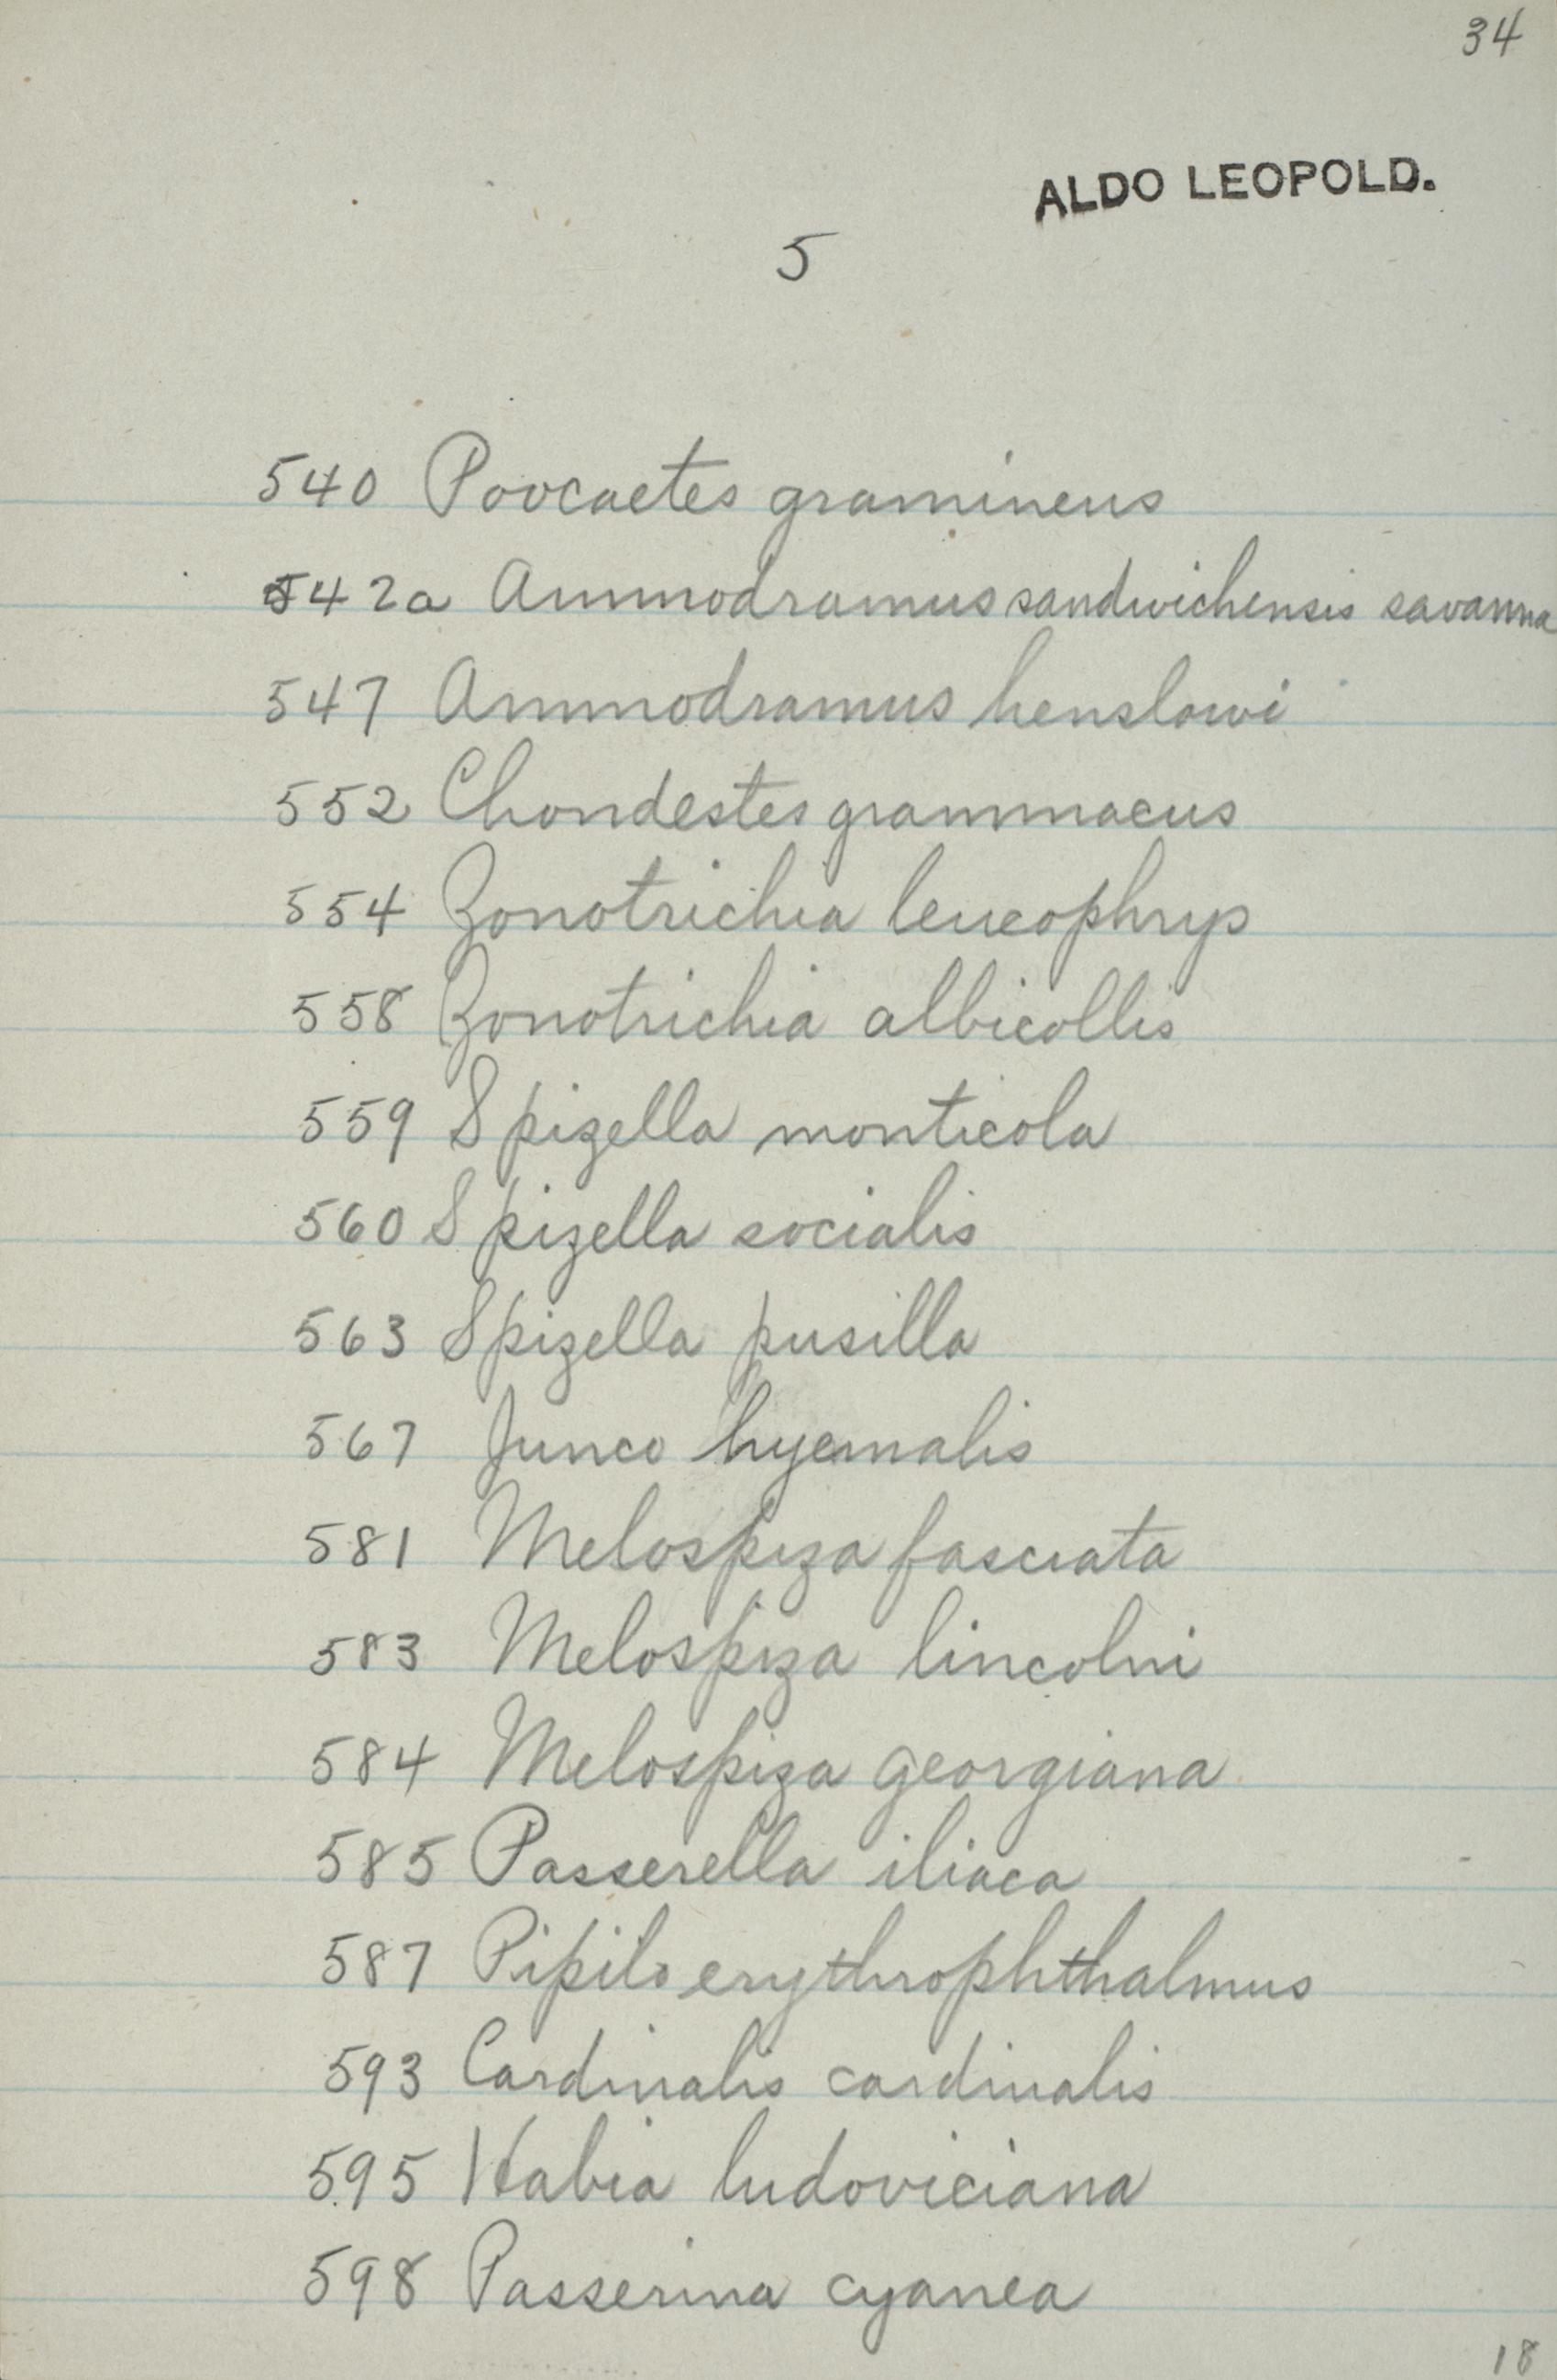 34
ALDO LEOPOLD.
5
540 Poocaetes gramineus
542a Ammodramus sandwichensis savanna
547 Ammodramus henslowi
552 Chondestes grammacus
554 Zonotrichia leucophrys
558 Zonotrichia albicollis
559 Spizella monticola
560 Spizella socialis
563 Spizella pusilla
567 Junco hyemalis
581 Melospiza fasciata
583 Melospiza lincolni
584 Melospiza georgiana
585 Passerella iliaca
587 Pipilo erythrophthalmus
593 Cardinalis cardinalis
595 Habia ludoviciana
598 Passerina cyanea
18